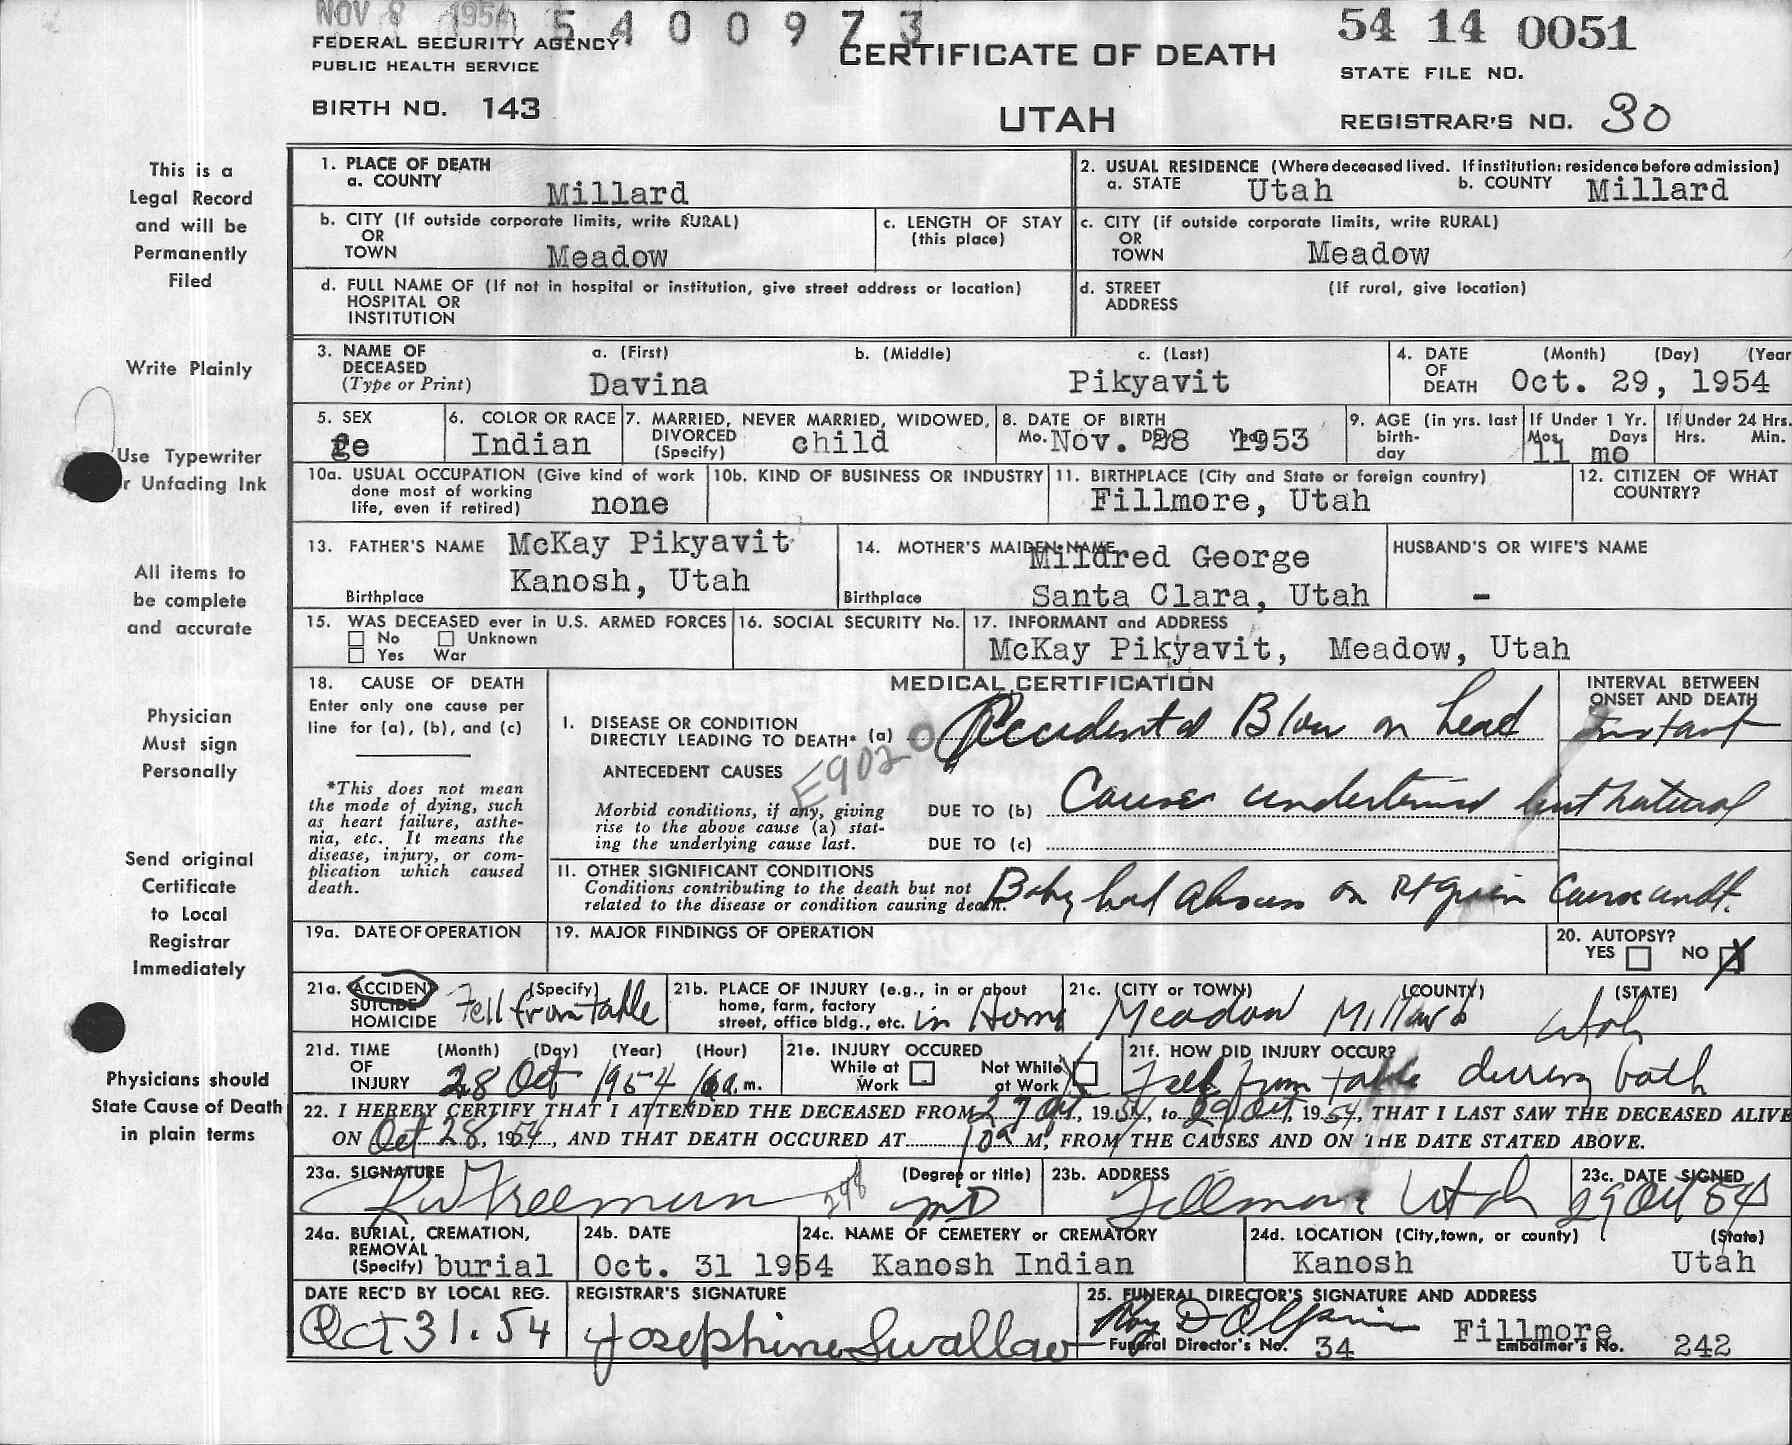 NOV 8 1954 5400973
54 14 0051
FEDERAL SECURITY AGENCY
PUBLIC HEALTH SERVICE
CERTIFICATE OF DEATH
STATE FILE NO.
BIRTH NO. 143
UTAH
REGISTRAR'S NO. 30
This is a
Legal Record
and will be
Permanently
Filed
Write Plainly
Use Typewriter
r Unfading Ink
All items to
be complete
and accurate
Physician
Must sign
Personally
Send original
Certificate
to Local
Registrar
Immediately
Physicians should
State Cause of Death
in plain terms
1. PLACE OF DEATH
a. COUNTY Millard
2. USUAL RESIDENCE (Where deceased lived. If institution: residence before admission)
a. STATE Utah b. COUNTY Millard
b. CITY (If outside corporate limits, write RURAL)
OR
TOWN Meadow
c. LENGTH OF STAY
(this place)
c. CITY (if outside corporate limits, write RURAL)
OR
TOWN Meadow
d. FULL NAME OF (If not in hospital or institution, give street address or location)
HOSPITAL OR
INSTITUTION
d. STREET (If rural, give location)
ADDRESS
3. NAME OF a. (First) b. (Middle) c. (Last)
DECEASED
(Type or Print) Davina Pikyavit
4. DATE (Month) (Day) (Year
OF
DEATH Oct. 29, 1954
5. SEX
6. COLOR OR RACE
Indian
7. MARRIED, NEVER MARRIED, WIDOWED,
DIVORCED
(Specify) child
8. DATE OF BIRTH
Mo. Nov. Day 28 Year 1953
9. AGE (in yrs. last
birth-
day
If Under 1 Yr.
Mos. Days
11 mo
If Under 24 Hrs.
Hrs. Min.
10a. USUAL OCCUPATION (Give kind of work
done most of working
life, even if retired) none
10b. KIND OF BUSINESS OR INDUSTRY
11. BIRTHPLACE (City and State or foreign country)
Fillmore, Utah
12. CITIZEN OF WHAT
COUNTRY?
13. FATHER'S NAME McKay Pikyavit
Kanosh, Utah
Birthplace
14. MOTHER'S MAIDEN NAME Mildred George
Birthplace Santa Clara, Utah
HUSBAND'S OR WIFE'S NAME
-
15. WAS DECEASED ever in U.S. ARMED FORCES
No Unknown
Yes War
16. SOCIAL SECURITY No.
17. INFORMANT and ADDRESS
McKay Pikyavit, Meadow, Utah
18. CAUSE OF DEATH
Enter only one cause per
line for (a), (b), and (c)
*This does not mean
the mode of dying, such
as heart failure, asthe-
nia, etc. It means the
disease, injury, or com-
plication which caused
death.
MEDICAL CERTIFICATION
INTERVAL BETWEEN
ONSET AND DEATH
I. DISEASE OR CONDITION
DIRECTLY LEADING TO DEATH* (a) Accidental Blow on head Instant
E9020
ANTECEDENT CAUSES
Morbid conditions, if any, giving
rise to the above cause (a) stat-
ing the underlying cause last.
DUE TO (b) Cause undetermined but natural
DUE TO (c)
11. OTHER SIGNIFICANT CONDITIONS
Conditions contributing to the death but not
related to the disease or condition causing death.
Baby had abscess on Rt groin Cause undt.
19a. DATE OF OPERATION
19. MAJOR FINDINGS OF OPERATION
20. AUTOPSY?
YES NO X
21a. ACCIDENT (Specify)
SUICIDE
HOMICIDE Fell from table
21b. PLACE OF INJURY (e.g., in or about
home, farm, factory
street, office bldg., etc. in Home
21c. (CITY or TOWN) (COUNTY) (STATE)
Meadow Millard Utah
21d. TIME (Month) (Day) (Year) (Hour)
OF
INJURY 28 Oct 1954 a.m.
21e. INJURY OCCURED
While at
Work
Not While
at Work
21f. HOW DID INJURY OCCUR?
Fell from table during bath
22. I HEREBY CERTIFY THAT I ATTENDED THE DECEASED FROM 27 Oct, 1954, to 29 Oct, 1954, THAT I LAST SAW THE DECEASED ALIVE
ON Oct 28, 1954, AND THAT DEATH OCCURED AT M, FROM THE CAUSES AND ON THE DATE STATED ABOVE.
23a. SIGNATURE (Degree or title)
Freeman MD
23b. ADDRESS
Fillmore Utah
23c. DATE SIGNED
29 Oct 54
24a. BURIAL, CREMATION,
REMOVAL
(Specify) burial
24b. DATE
Oct. 31 1954
24c. NAME OF CEMETERY or CREMATORY
Kanosh Indian
24d. LOCATION (City, town, or county) (State)
Kanosh Utah
DATE REC'D BY LOCAL REG.
Oct 31. 54
REGISTRAR'S SIGNATURE
Josephine Swallow
25. FUNERAL DIRECTOR'S SIGNATURE AND ADDRESS
Roy D Olpin Fillmore
Funeral Director's No. 34 Embalmer's No. 242